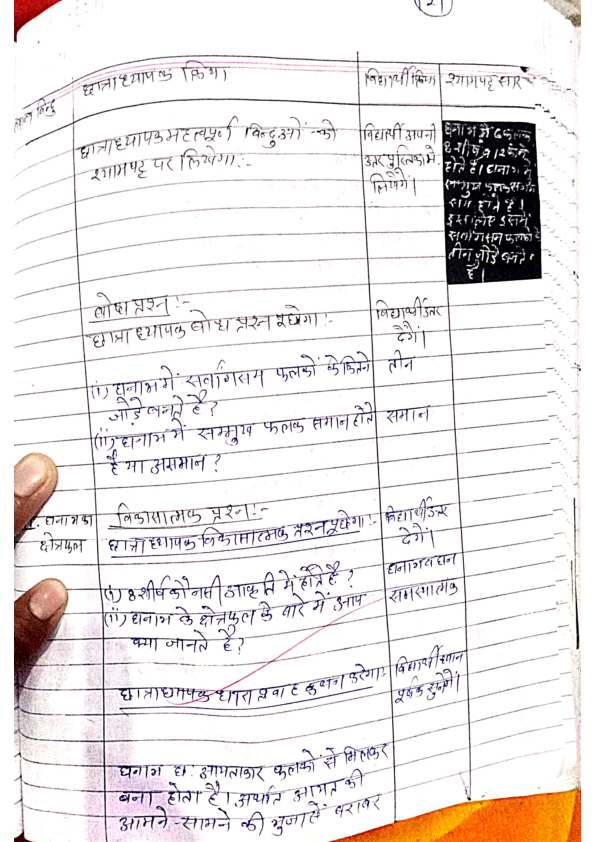 21
शिक्षण बिन्दु
छात्राध्यापक क्रिया
विद्यार्थी क्रिया
श्यामपट्ट सार
छात्राध्यापक महत्वपूर्ण बिन्दुओं को
श्यामपट्ट पर लिखेगा:-
विद्यार्थी अपनी
उत्तर पुस्तिका में
लिखेंगे।
घनाभ में 6 फलक
8 शीर्ष व 12 कोर
होते हैं। घनाभ में
सम्मुख फलक समान
होते हैं।
इसलिए इसमें
सर्वांगसम फलकों के
तीन जोड़े बनते
हैं।
बोध प्रश्न:-
छात्राध्यापक बोध प्रश्न पूछेगा:-
विद्यार्थी उत्तर
देंगे।
(i) घनाभ में सर्वांगसम फलकों के कितने
जोड़े बनते है?
तीन
(ii) घनाभ में सम्मुख फलक समान होते
है या असमान?
समान
घनाभ का
क्षेत्रफल
विकासात्मक प्रश्न:-
छात्राध्यापक विकासात्मक प्रश्न पूछेगा:-
विद्यार्थी उत्तर
देंगे।
(i) 8 शीर्ष कौनसी आकृति में होते है?
घनाभ व घन
(ii) घनाभ के क्षेत्रफल के बारे में आप
क्या जानते है?
समस्यात्मक
छात्राध्यापक धारा प्रवाह कथन करेगा:-
विद्यार्थी ध्यान
पूर्वक सुनेंगे।
घनाभ छ: आयताकार फलकों से मिलकर
बना होता है। अर्थात आयत की
आमने-सामने की भुजाएें बराबर